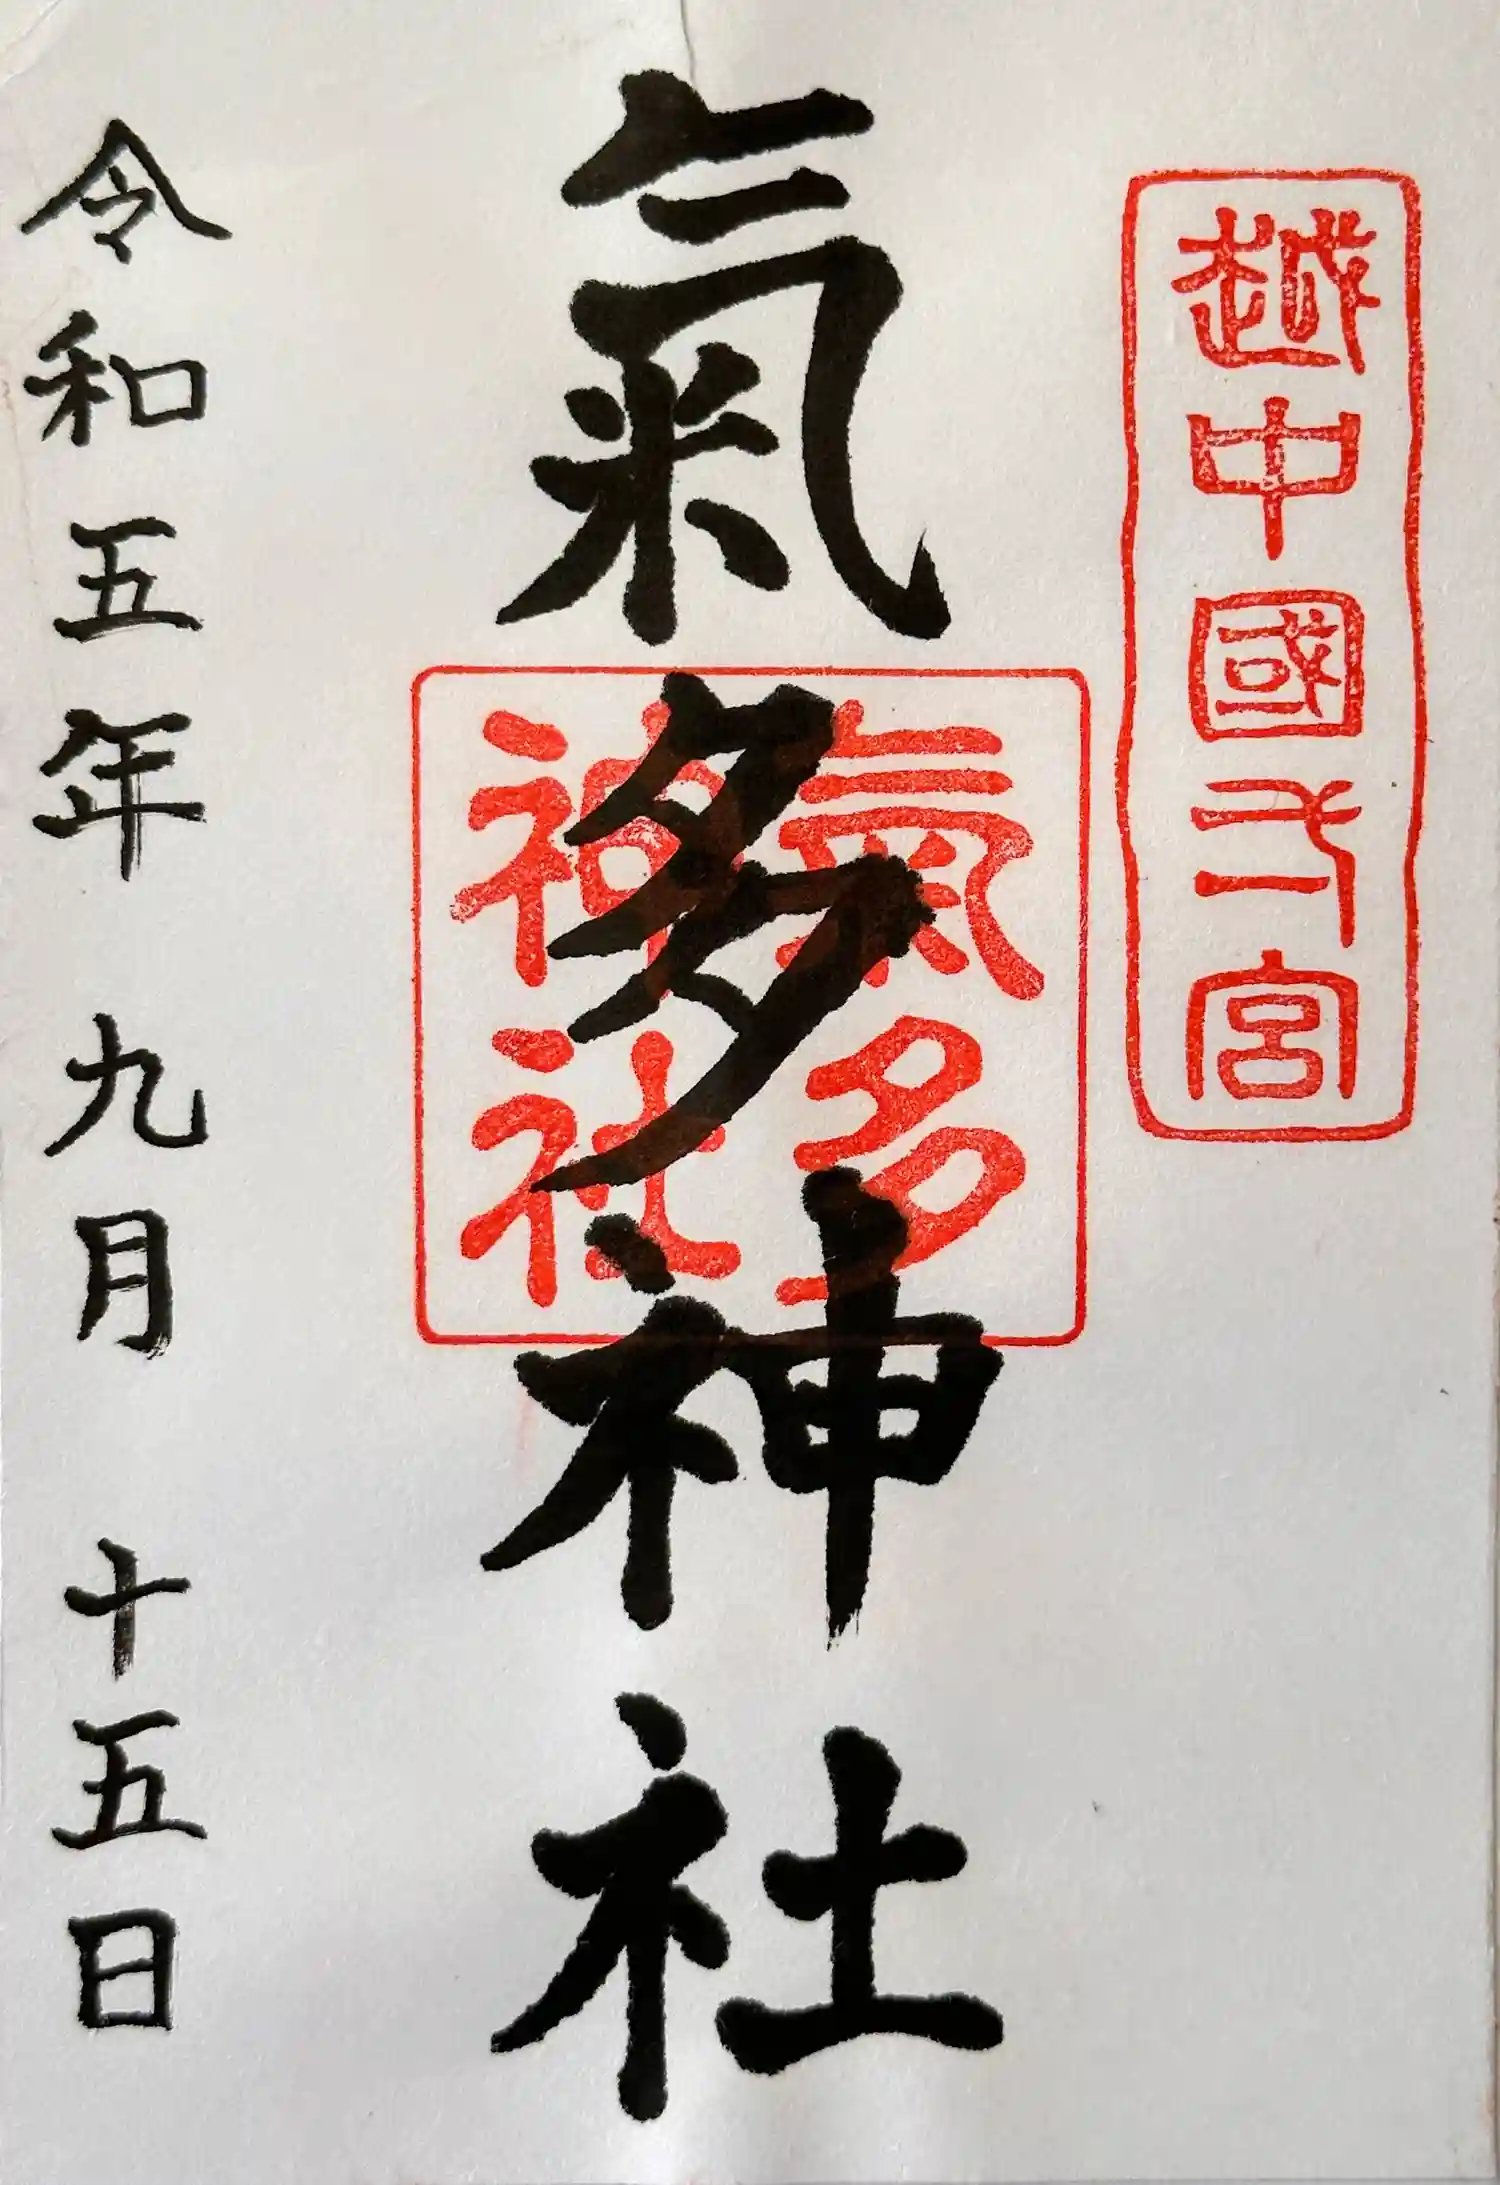 越中國一宮
氣多神社
氣多
神社
令和五年 九月 十五日